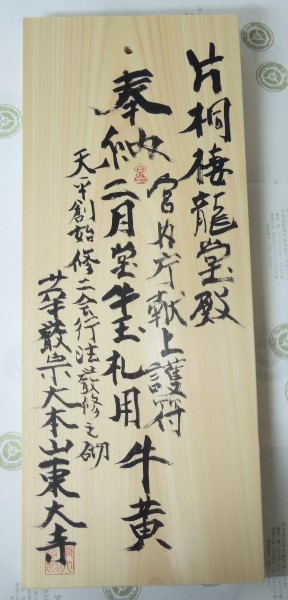 片桐棲龍堂殿
宮内庁献上護符
奉納二月堂牛玉札用牛黄
天平創始修二会行法厳修之砌
華厳宗大本山東大寺